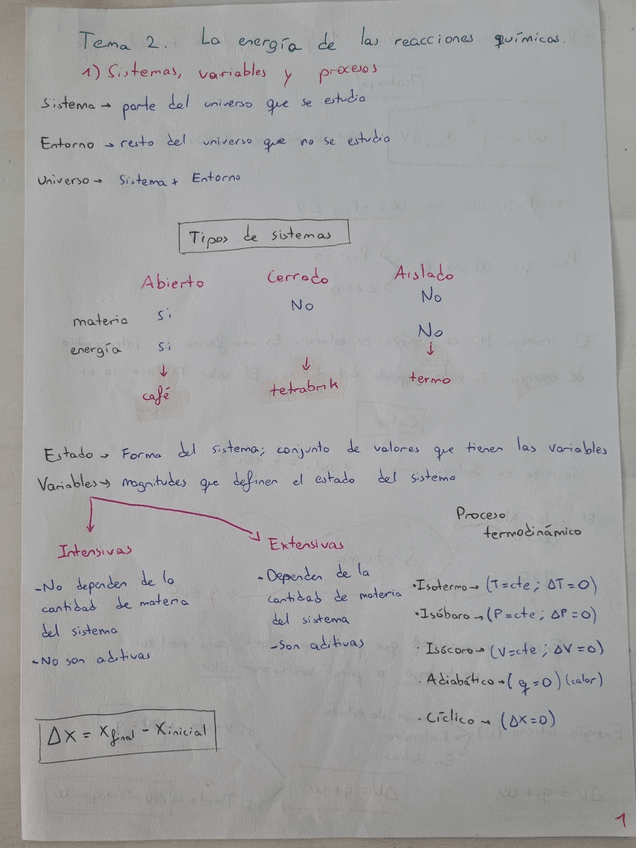 Tema 2. La energía de las reacciones químicas.
1) Sistemas, variables y procesos
Sistema → parte del universo que se estudia
Entorno → resto del universo que no se estudia
Universo → Sistema + Entorno
Tipos de sistemas
Abierto Cerrado Aislado
materia Si No No
energía Si No
↓ ↓ ↓
café tetrabrik termo
Estado → Forma del sistema; conjunto de valores que tienen las variables
Variables → magnitudes que definen el estado del sistema
Intensivas
-No dependen de la
cantidad de materia
del sistema
-No son aditivas
Extensivas
-Dependen de la
cantidad de materia
del sistema
-Son aditivas
Proceso
termodinámico
·Isotermo → (T=cte; ΔT=0)
·Isóbaro → (P=cte; ΔP=0)
·Isócoro → (V=cte; ΔV=0)
·Adiabático → (q=0) (calor)
·Cíclico → (ΔX=0)
ΔX = X final - X inicial
1